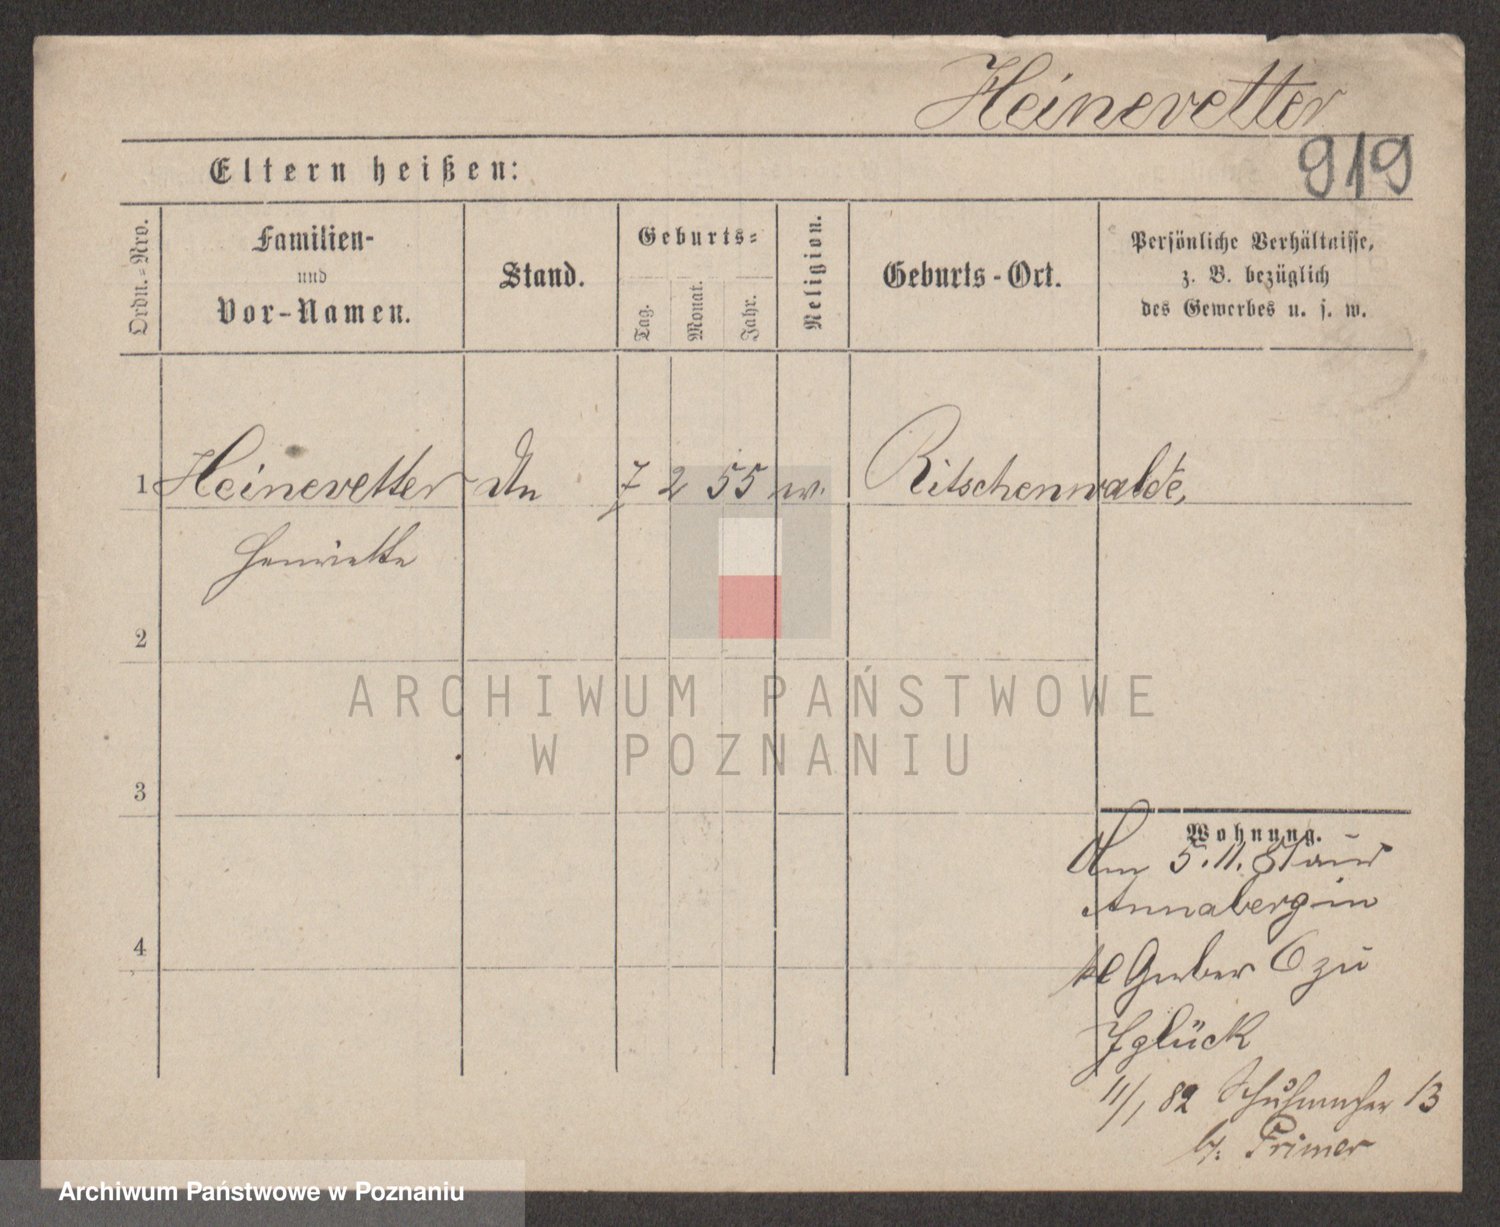 Heinevetter
919
Eltern heißen:
Ordn.-Nro.
Familien-
und
Vor-Namen.
Stand.
Geburts-
Tag.
Monat.
Jahr.
Religion.
Geburts-Ort.
Persönliche Verhältnisse,
z. B. bezüglich
des Gewerbes u. s. w.
1 Heinevetter 7 2 55 Ritschenwalde,
Henriette
2
3
4
Wohnung.
Am 5.11.81 aus
Annaberg in
kl Gerber 6 zu
Jglück
11/1 82 Schuhmacher 13
b/. Primer
ARCHIWUM PAŃSTWOWE
W POZNANIU
Archiwum Państwowe w Poznaniu